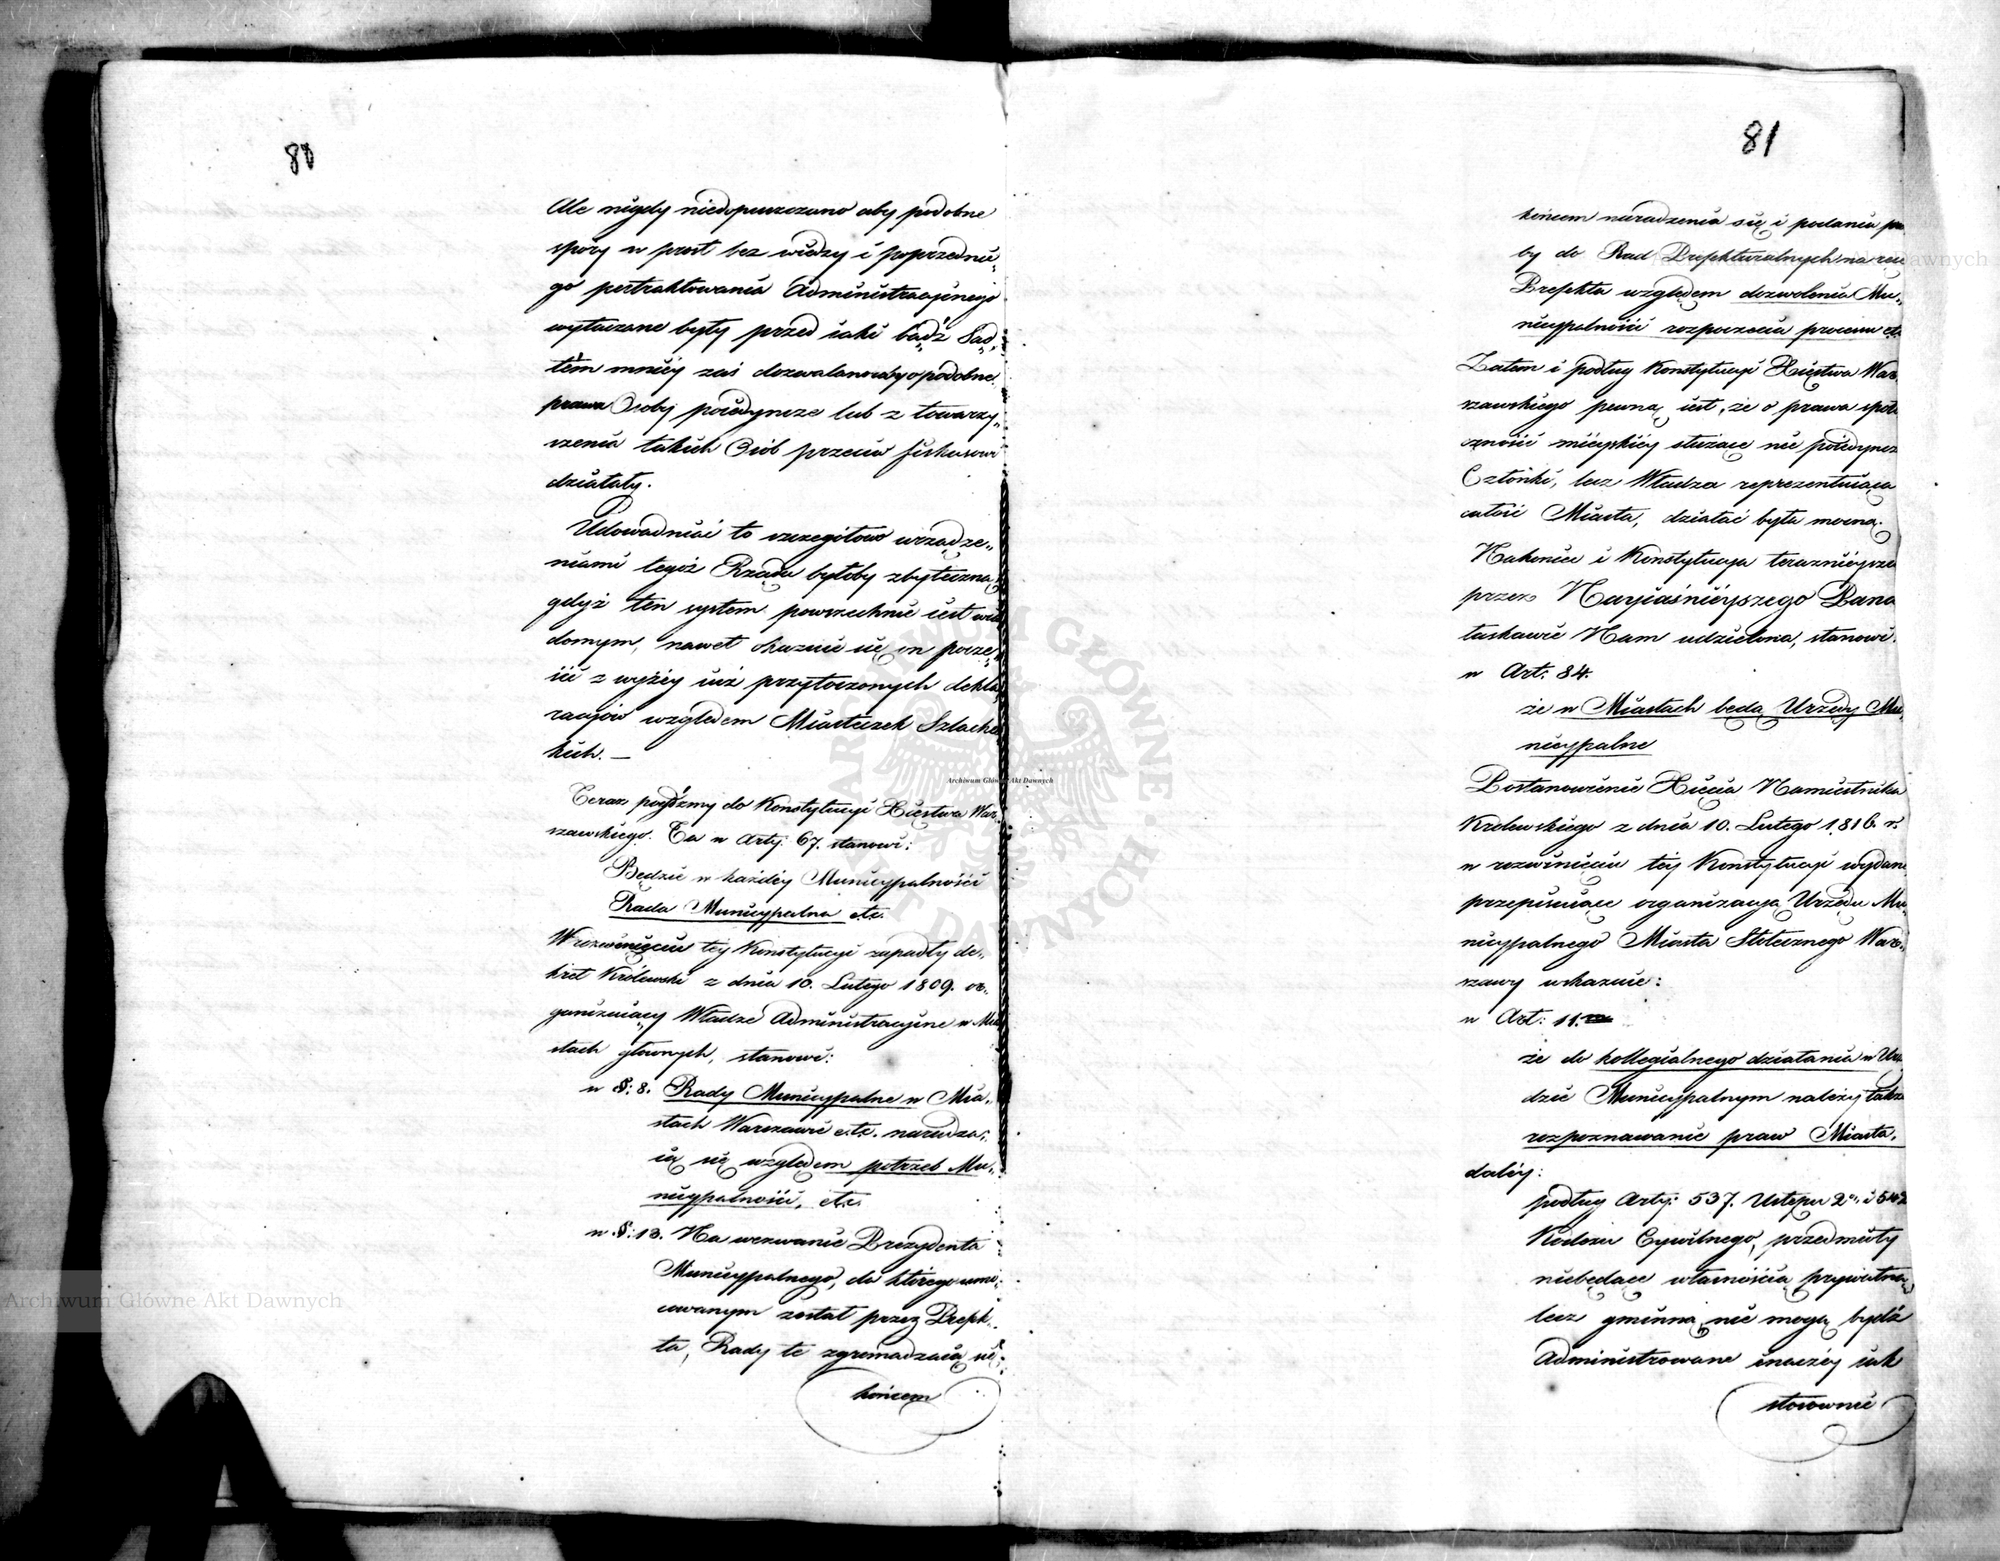 80
Ale nigdy niedopuszczano aby podobne
spory w prost bez wiedzy i poprzednie„
go pertraktowania Administracyinego
wytaczane były przed iaki bądź Sąd,
tém mniéy zaś dozwalano aby o podobne
prawa Osoby poiedyncze lub z towarzy„
szenia takich Osób przeciw fiskusowi
działały.
Udowadniać to szczegółowo urządze„
niami tegoż Rządu byłoby zbyteczną
gdyż ten system powszechnie iest wia
domym, nawet okazuie się on poczę„
ści z wyżéy iuż przytoczonych dekla„
racyiów względem Miasteczek Szlache
kich. —
Teraz poydźmy do Konstytucyi Xięstwa War„
szawskiego. Ta w Arty: 67. stanowi:
Będzie w każdéy Municypalności
Rada Municypalna etc.
W rozwinięciu téy Konstytucyi zapadły de„
kret Królewski z dnia 10. Lutego 1809. or„
ganizuiący Władze Administracyine w Mia
stach głownych, stanowi:
w §: 8. Rady Municypalne w Mia„
stach Warszawie etc. naradza„
ią się względem potrzeb Mu„
nicypalności, etc.
w §: 13. Na wezwanie Prezydenta
Municypalnego, do którego umo„
cowanym został przez Prefek„
ta, Rady te zgromadzaią się
końcem
81
końcem naradzenia się i podania
by do Rad Prefekturalnych na ręce
Prefekta względem dozwolenia Mu„
nicypalności rozpoczęcia procesu etc
Zatem i podług Konstytucyi Xięstwa War
szawskiego pewną iest, że o prawa społe
czność mieyskiéy służące nie poiedyncze
Członki, lecz Władza reprezentuiąca
całość Miasta, działać była mocną.
Nakoniec i Konstytucya teraznieysza
przez Nayiaśnieyszego Pana
łaskawie Nam udzielona, stanowi:
w Art: 84.
że w Miastach będą Urzędy Mu„
nicypalne
Postanowienie Xięcia Namiestnika
Krolewskiego z dnia 10. Lutego 1816. r.
w rozwinięciu téy Konstytucyi wydane
przepisuiące organizacyą Urzędu Mu„
nicypalnego Miasta Stołecznego War„
szawy wskazuie:
w Art: 11.
że do kollegialnego działania w Urzę
dzie Municypalnym należy także
rozpoznawanie praw Miasta.
daléy:
podług Arty: 537. Ustępu 2º i 542
Kodexu Cywilnego, przedmioty
niebędące własnością prywatną
lecz gminną nie mogą bydź
Administrowane inaczéy iak
stosownie
Archiwum Główne Akt Dawnych
Archiwum Główne Akt Dawnych
Archiwum Główne Akt Dawnych
ARCHIWUM GŁÓWNE AKT DAWNYCH